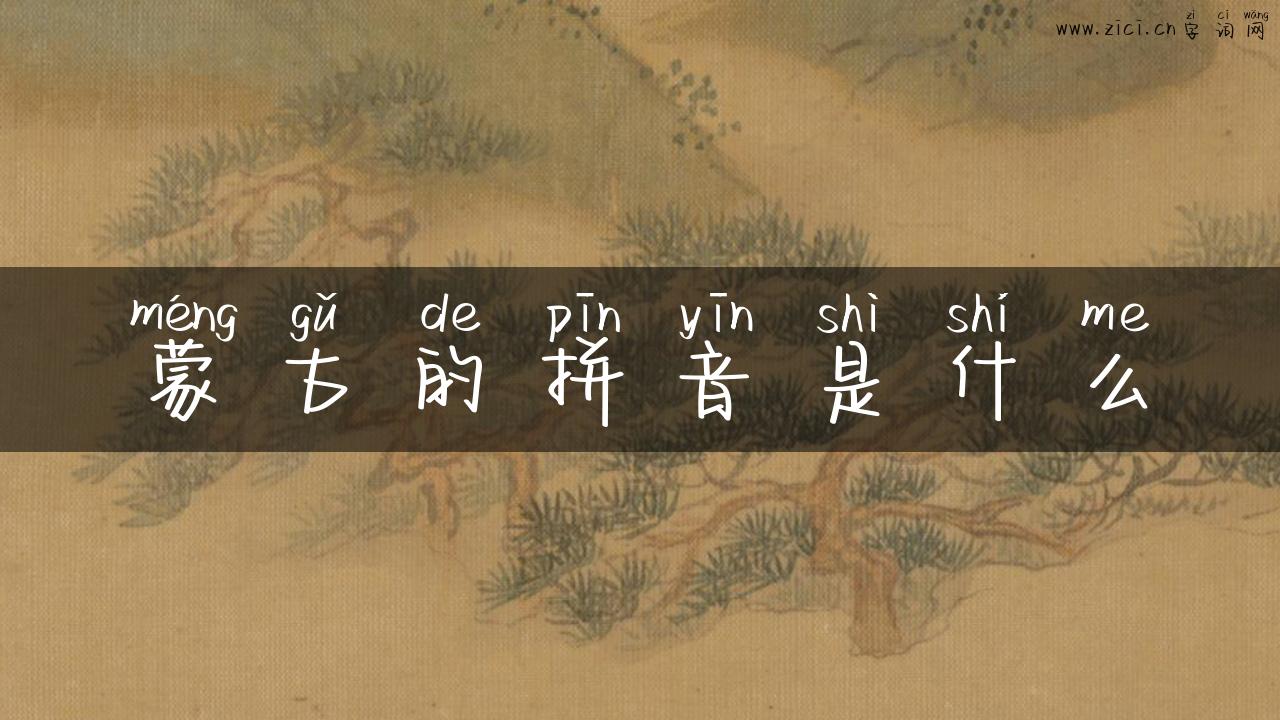 zì cí wǎng
www.zici.cn 字 词 网
méng gǔ de pīn yīn shì shí me
蒙 古 的 拼 音 是 什 么